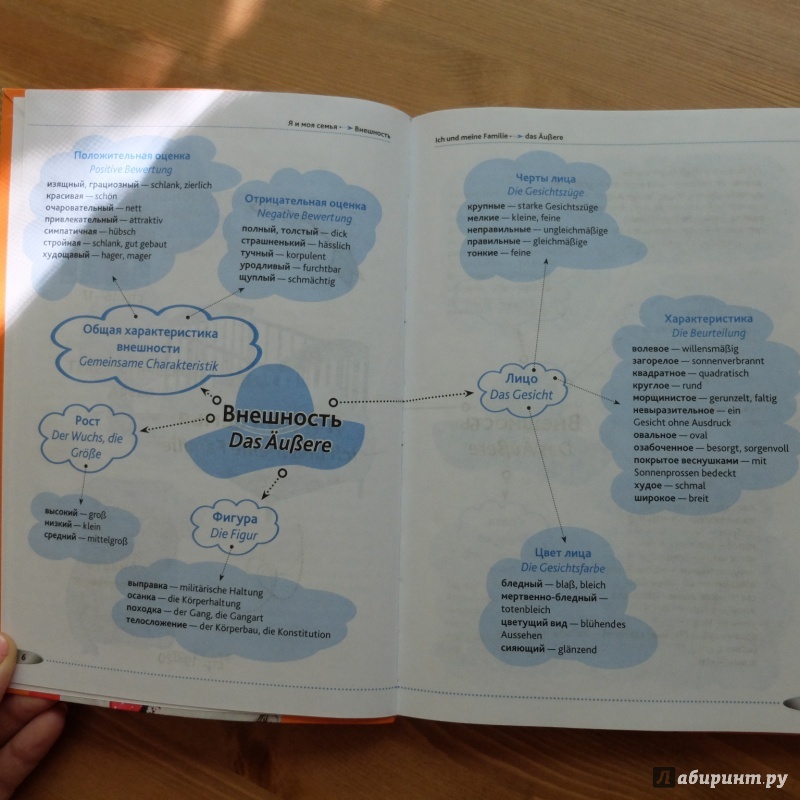 Я и моя семья Внешность
Положительная оценка
Positive Bewertung
изящный, грациозный — schlank, zierlich
красивая — schön
очаровательный — nett
привлекательный — attraktiv
симпатичная — hübsch
стройная — schlank, gut gebaut
худощавый — hager, mager
Отрицательная оценка
Negative Bewertung
полный, толстый — dick
страшненький — hässlich
тучный — korpulent
уродливый — furchtbar
щуплый — schmächtig
Общая характеристика
внешности
Gemeinsame Charakteristik
Внешность
Das Äußere
Рост
Der Wuchs, die
Größe
высокий — groß
низкий — klein
средний — mittelgroß
Фигура
Die Figur
выправка — militärische Haltung
осанка — die Körperhaltung
походка — der Gang, die Gangart
телосложение — der Körperbau, die Konstitution
6
Ich und meine Familie das Äußere
Черты лица
Die Gesichtszüge
крупные — starke Gesichtszüge
мелкие — kleine, feine
неправильные — ungleichmäßige
правильные — gleichmäßige
тонкие — feine
Лицо
Das Gesicht
Характеристика
Die Beurteilung
волевое — willensmäßig
загорелое — sonnenverbrannt
квадратное — quadratisch
круглое — rund
морщинистое — gerunzelt, faltig
невыразительное — ein
Gesicht ohne Ausdruck
овальное — oval
озабоченное — besorgt, sorgenvoll
покрытое веснушками — mit
Sonnenprossen bedeckt
худое — schmal
широкое — breit
Цвет лица
Die Gesichtsfarbe
бледный — blaß, bleich
мертвенно-бледный —
totenbleich
цветущий вид — blühendes
Aussehen
сияющий — glänzend
Лабиринт.ру